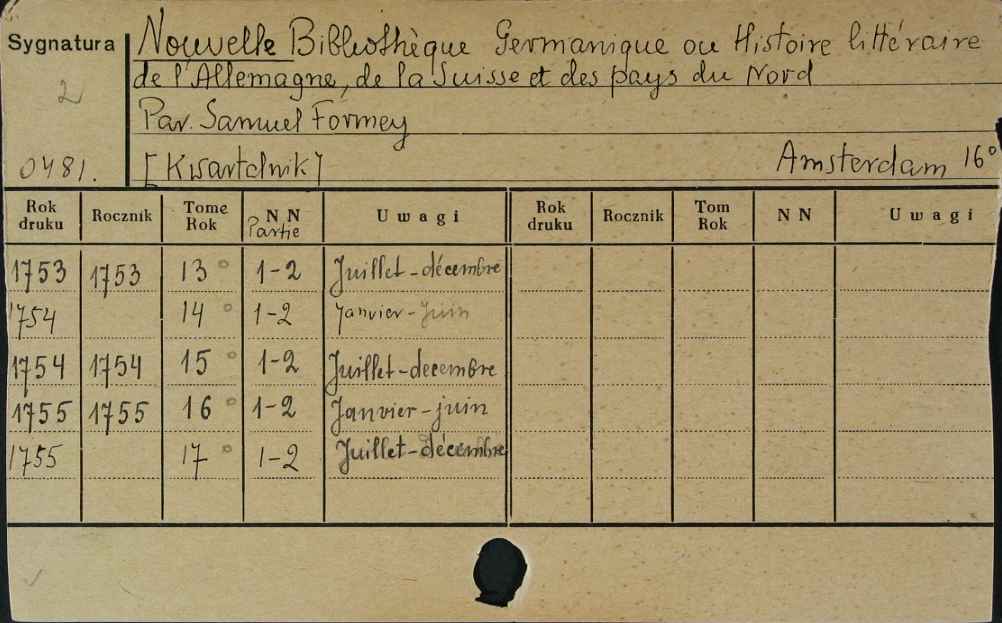 Sygnatura
2
0481.
Nouvelle Bibliothèque Germanique ou Histoire littéraire
de l'Allemagne, de la Suisse et des pays du Nord
Par. Samuel Formey
[Kwartalnik]
Amsterdam 16°
Rok druku Rocznik Tome Rok NN Partie Uwagi Rok druku Rocznik Tom Rok NN Uwagi
1753 1753 13° 1-2 Juillet-décembre
1754 14° 1-2 Janvier-Juin
1754 1754 15° 1-2 Juillet-decembre
1755 1755 16° 1-2 Janvier-juin
1755 17° 1-2 Juillet-décembre